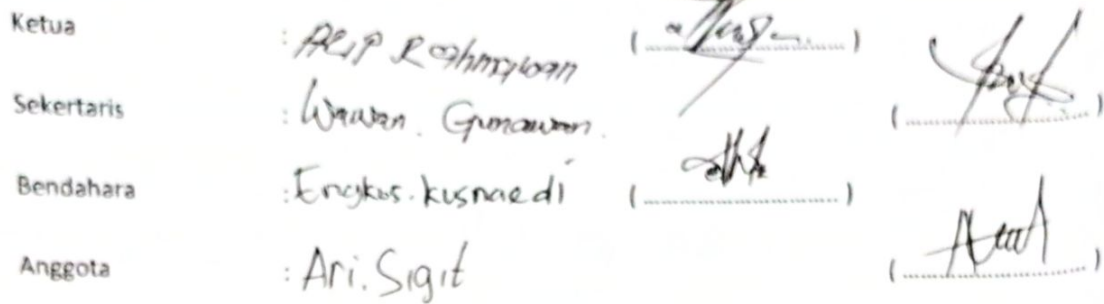 Ketua : Alip Rahmawan (........................)
Sekertaris : Wawan. Gunawan. (........................)
Bendahara : Engkus. kusnaedi (........................)
Anggota : Ari. Sigit (........................)